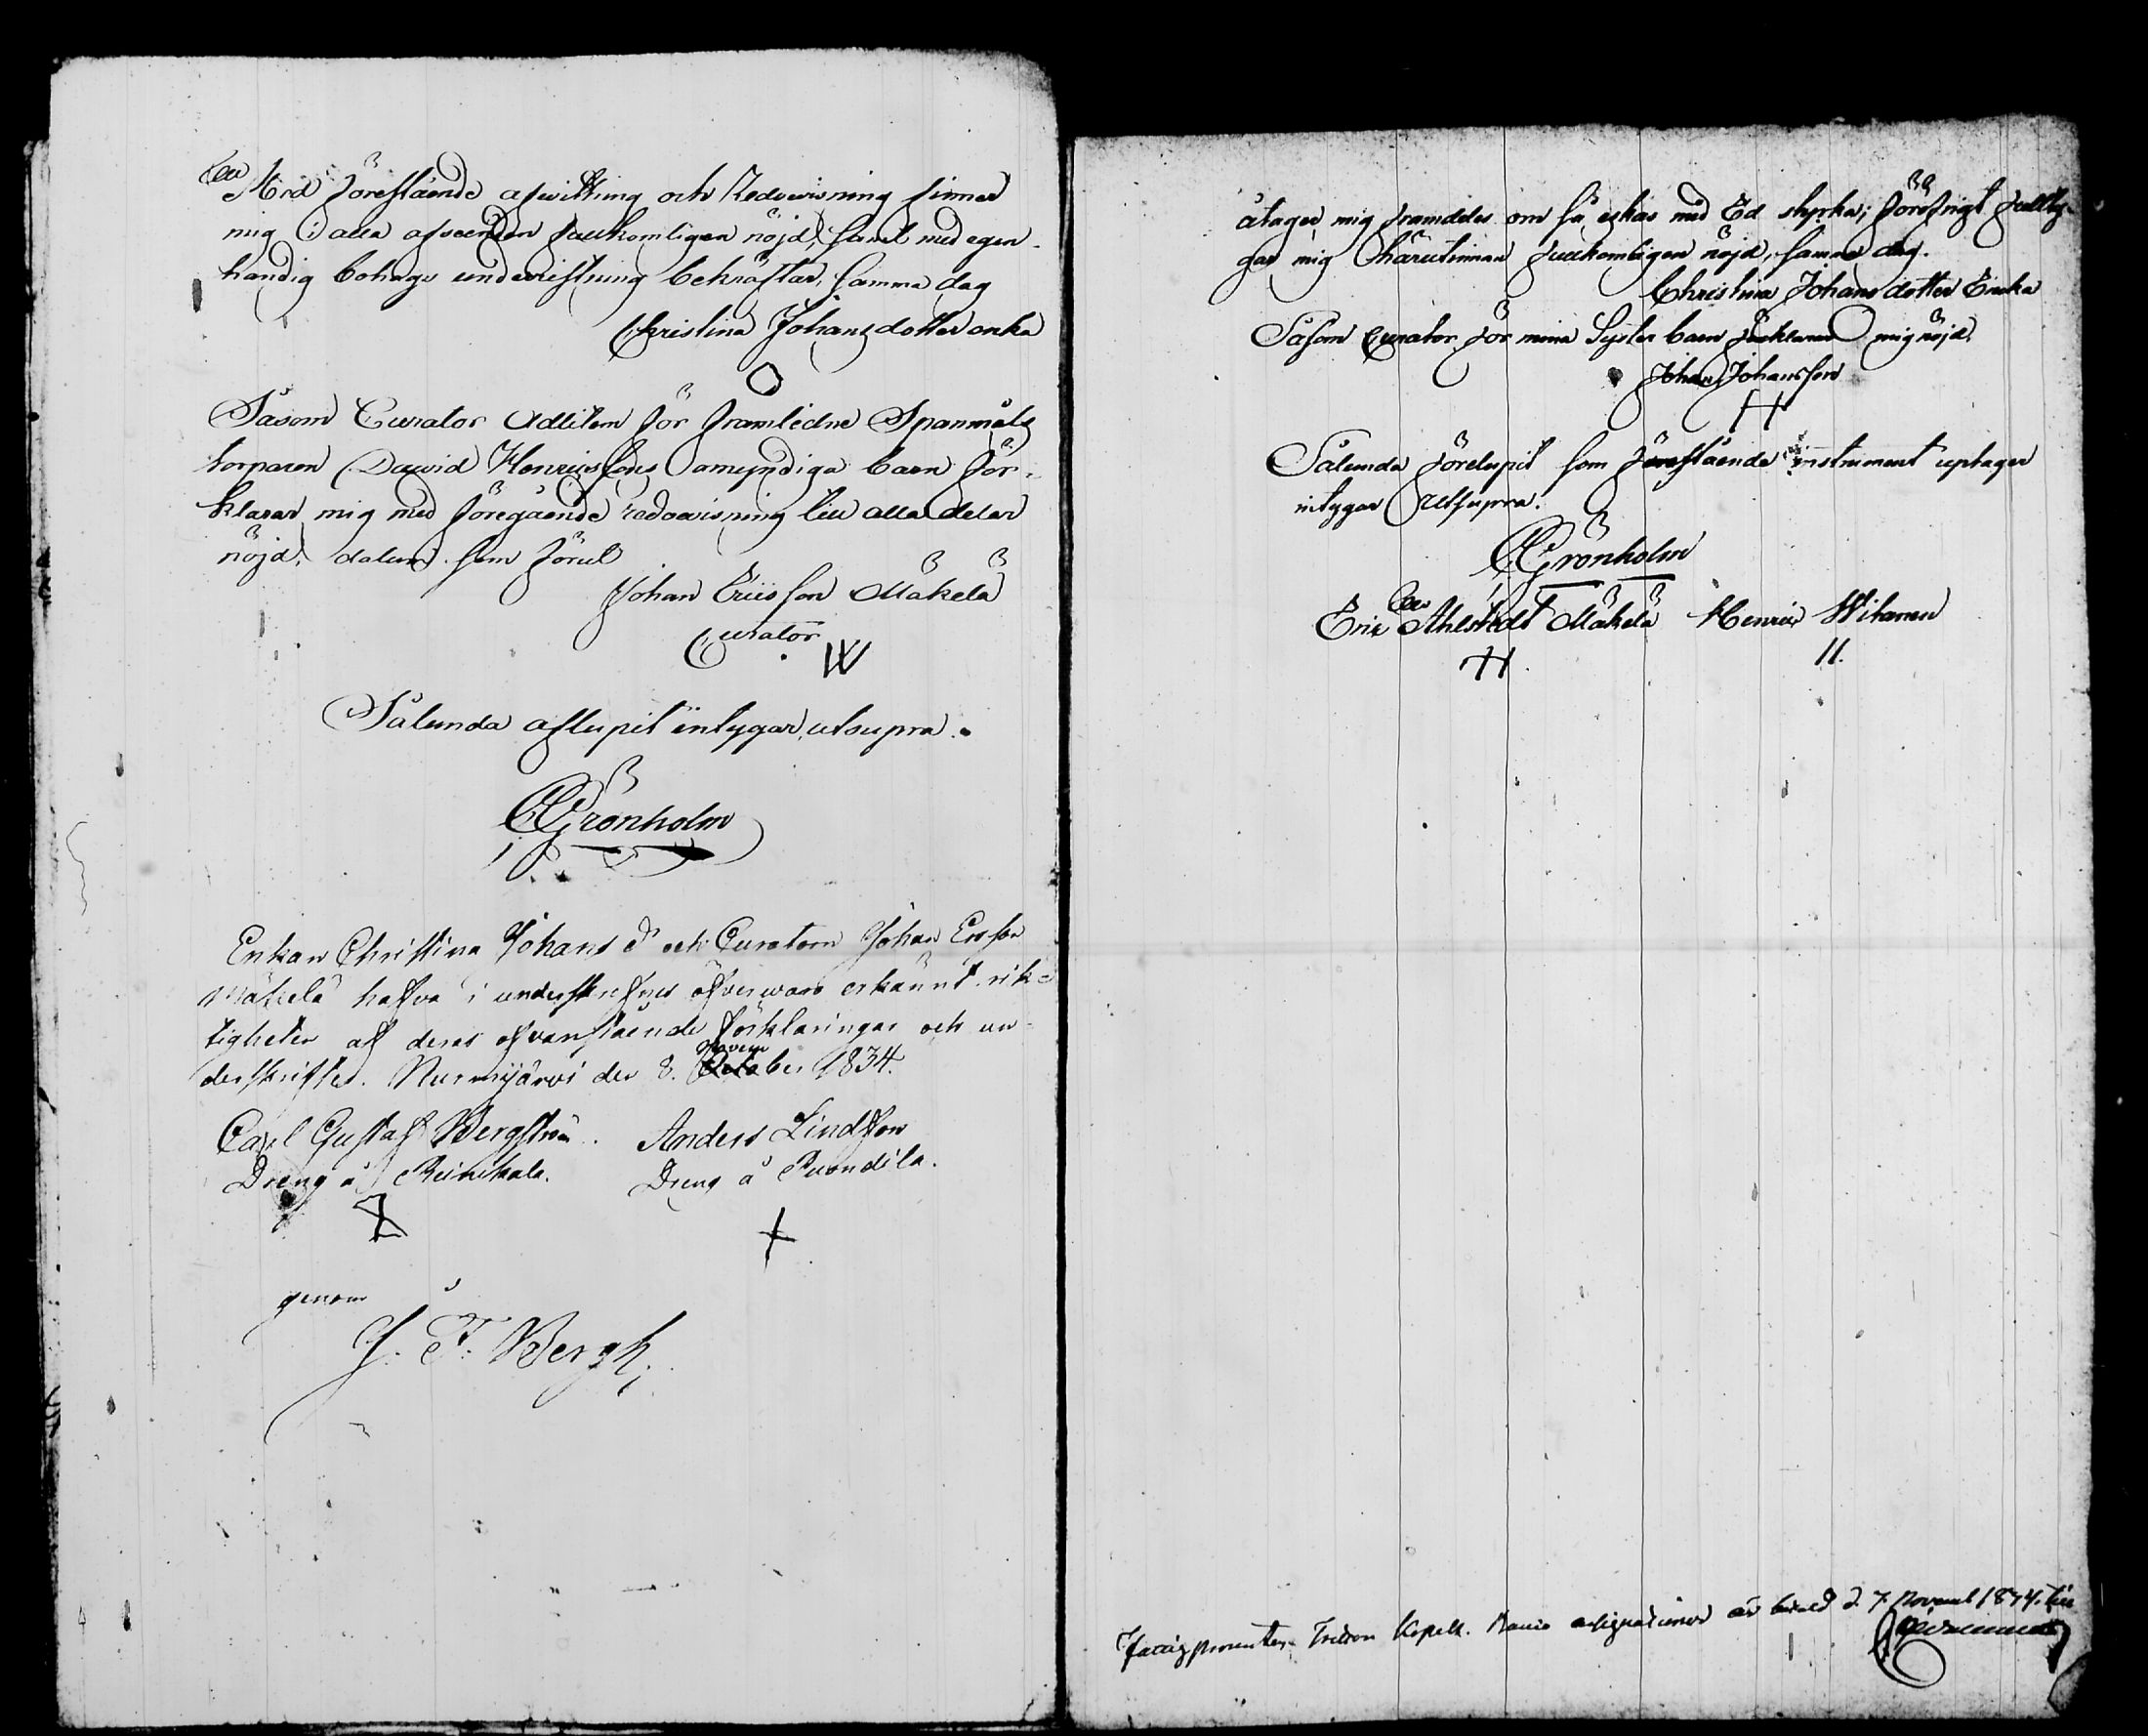 Med förestående afwittring och Redowisning finner
mig i alla afseenden fullkomligen nöjd, samt med egen-
händig bohags underristning bekräftar, samma dag
Christina Johansdotter enka
Såsom Curator Adlitem för framledne Spanmåls
torparen Dawid Henricssons omyndiga barn för-
klarar mig med föregående redowisning till alla delar
nöjd, datum som förut
Johan Ericsson Mäkelä
Curator
Sålunda aflupit intygar, utsupra.
C Grönholm
Enkan Christina Johans dr och Curatorn Johan Ersson
Mäkelä hafva i underskrifnes öfverwaro erkännt rik-
tigheten af deras ofvanstående förklaringar och un-
derskrifter. Nurmijärvi den 8. November 1834.
Carl Gustaf Bergström. Anders Lindsson
Dreng å Reinikala. Dreng å Puondila.
genom
J. F. Bergh
åtager mig framdeles om så eskas med Ed styrka; föröfrigt
gar mig härutinnan fullkomligen nöjd, samma dag.
Christina Johansdotter Encka
Såsom Curator för mina Syster barn förklarar mig nöjd.
Johan Johansson
Sålunda förelupit som förestående instrument uptager
intygar Utsupra.
C Grönholm
Eric Ahlstedt Mäkelä Henric Witanen
Fattigprocenten